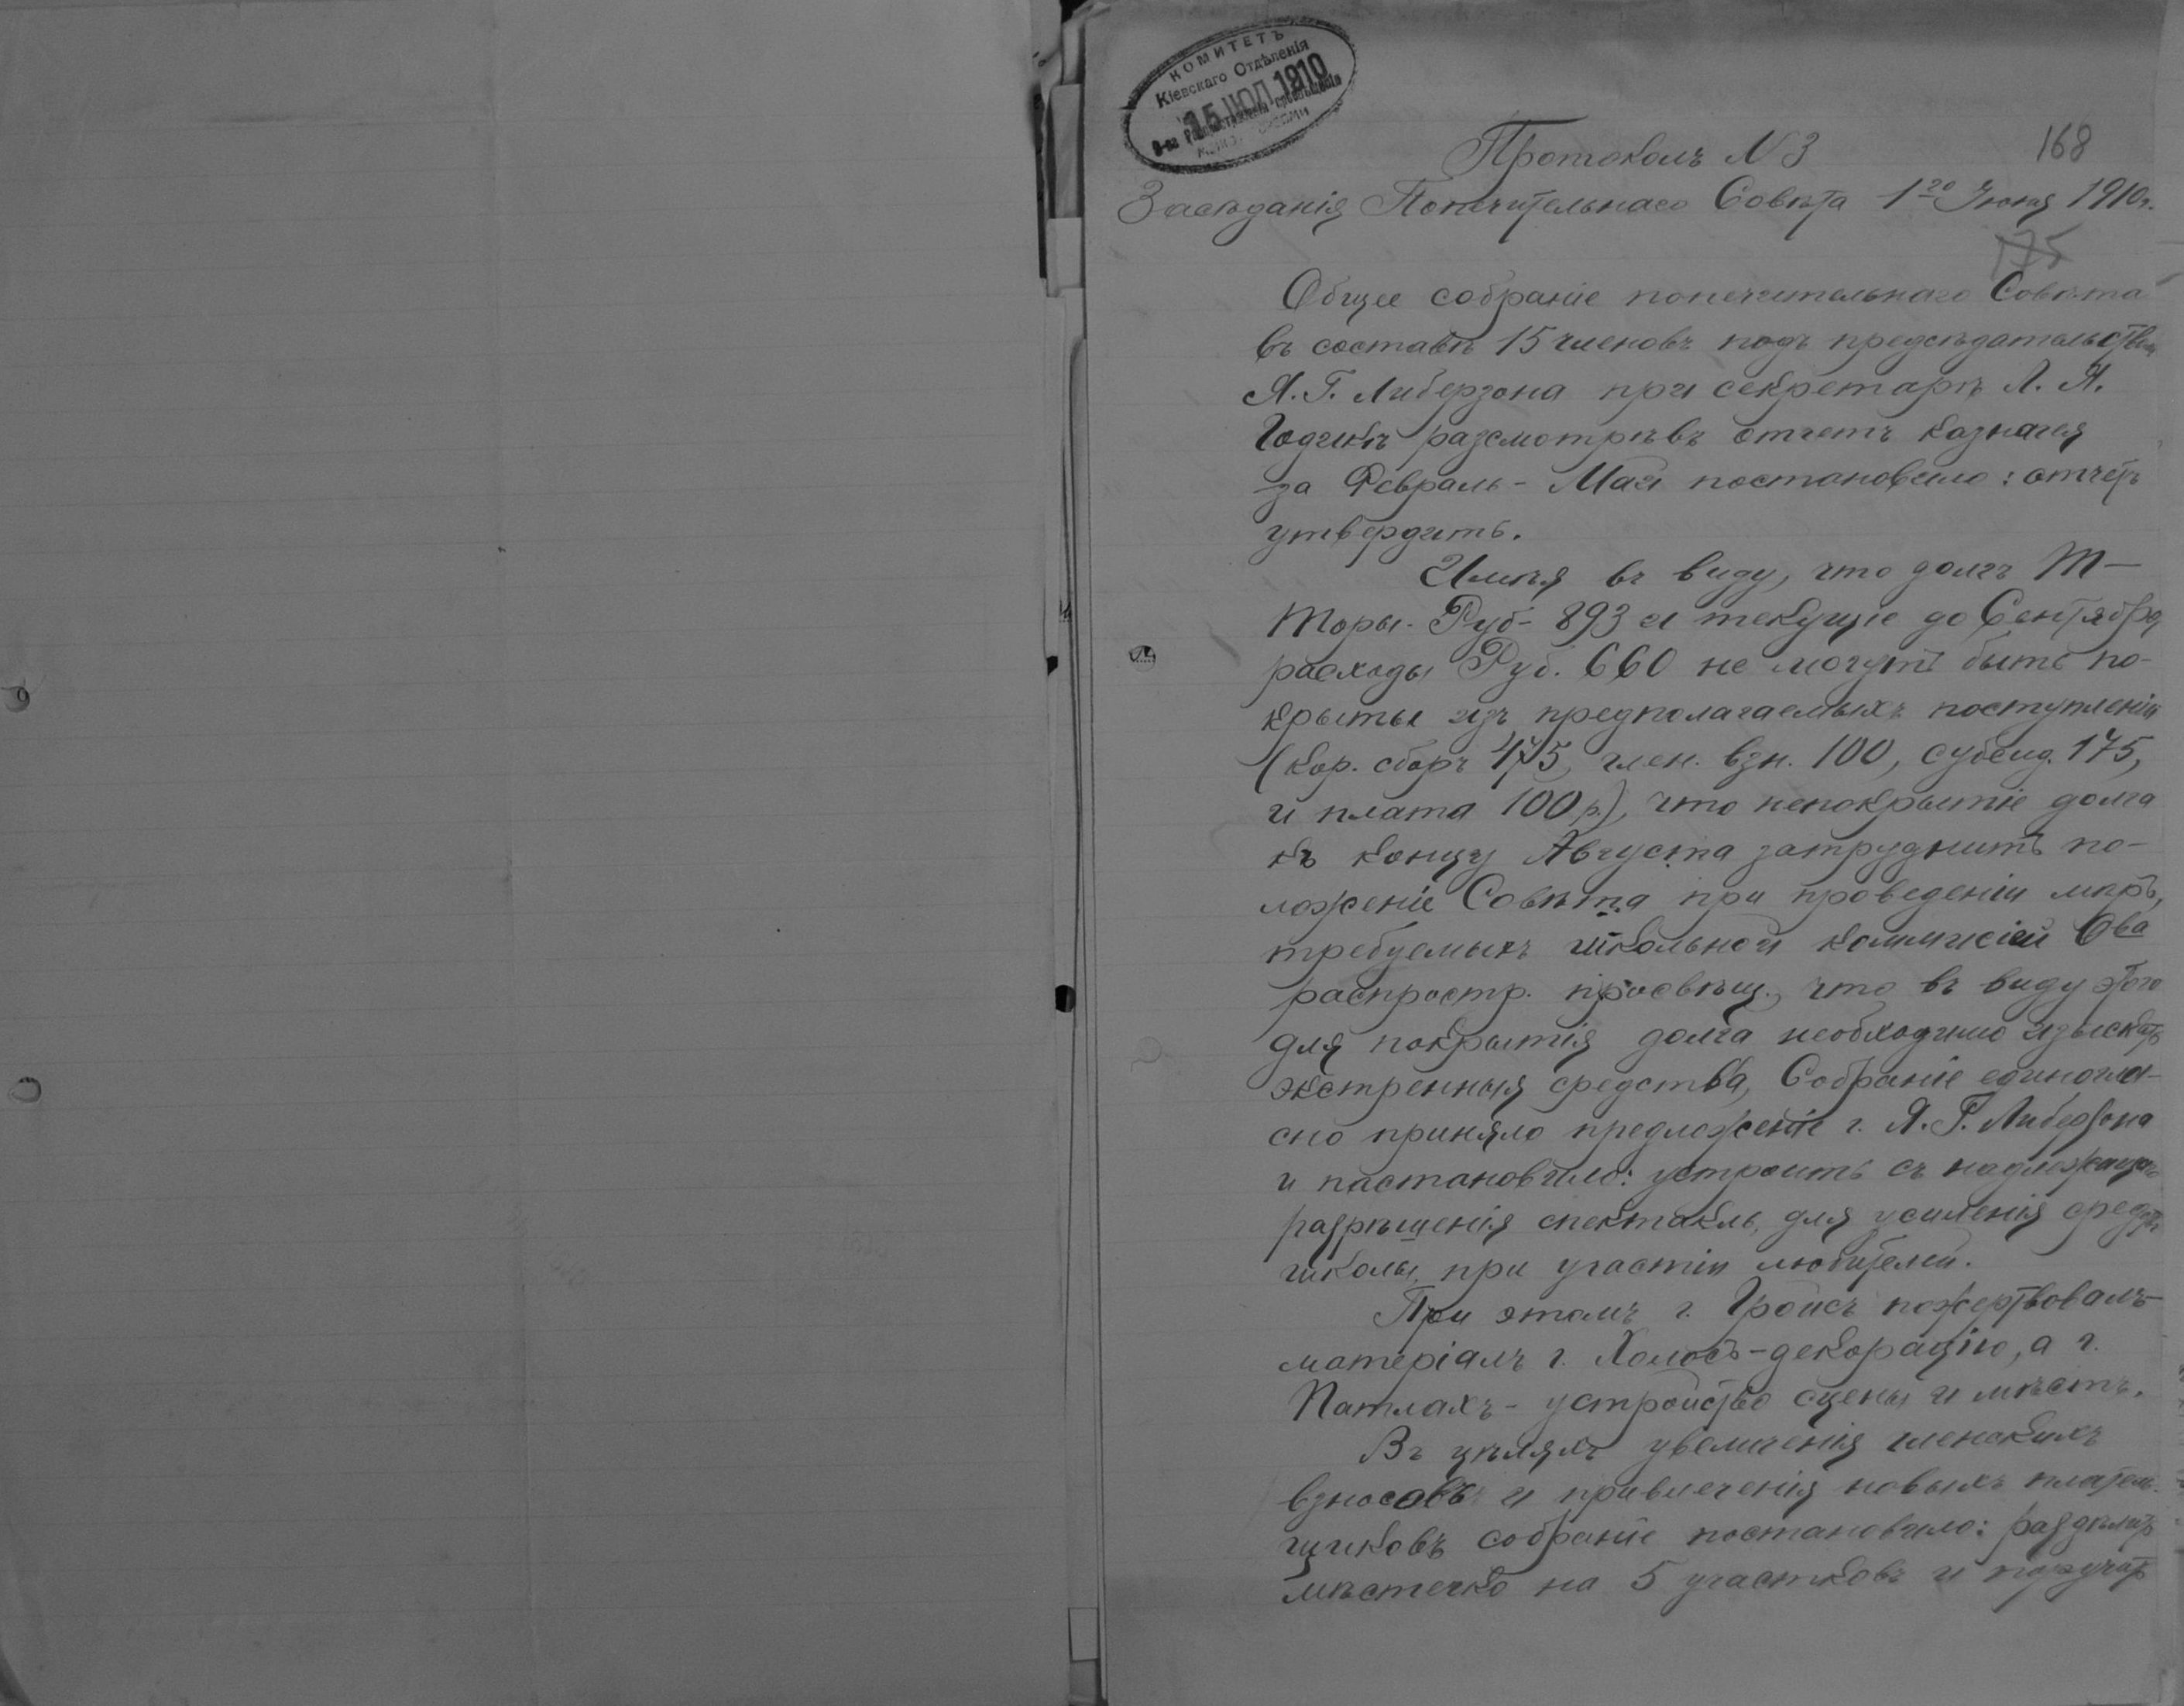 КОМИТЕТЪ
Кіевскаго Отдѣленія
15 ІЮЛ 1910
О-ва
168
Протоколъ N 3
Засѣданія Попечительнаго Совѣта 1го Іюня 1910г.
175
Общее собраніе попечительнаго Совѣта
въ составѣ 15 членовъ подъ предсѣдательствомъ
Я. Г. Либерзона при секретарѣ Л. Я.
Годзикѣ разсмотрѣвъ отчетъ казначея
за Февраль - Май постановило: отчетъ
утвердить.
Имѣя въ виду, что долгъ Т-
Торы - Руб - 893 и текущіе до Сентября
расходы Руб. 660 не могутъ быть по-
крыты изъ предполагаемыхъ поступленій
(кор. сборъ 475, член. взн. 100, субсид. 175,
и плата 100 р.), что непокрытіе долга
къ концу Августа затруднитъ по-
ложеніе Совѣта при проведеніи мѣръ,
требуемыхъ школьной коммисіей Ова
распростр. просвѣщ., что въ виду этого
для покрытія долга необходимо изыскать
экстренныя средства, Собраніе единогла-
сно приняло предложеніе г. Я. Г. Либерзона
и пастановило: устроить съ надлежащаго
разрѣшенія спектакль, для усиленія средствъ
школы, при участіи любителей.
При этомъ г. Гройсъ пожертвовалъ-
матеріалъ г. Холостъ - декорацію, а г.
Патлахъ - устройство сцены и мѣстъ.
Въ цѣляхъ увеличенія членскихъ
взносовъ и привлеченія новыхъ платель-
щиковъ собраніе постановило: раздѣлить
мѣстечко на 5 участковъ и поручать